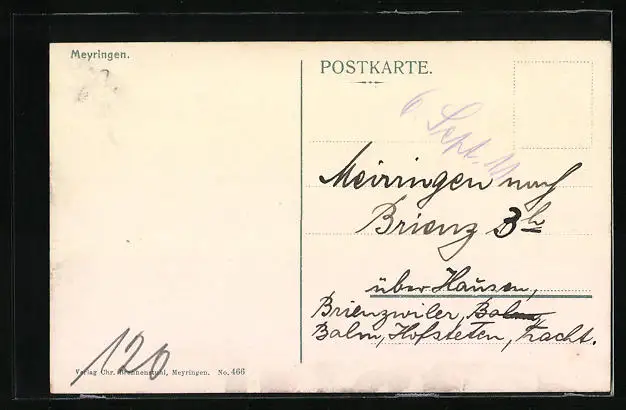 Meyringen.
POSTKARTE.
6. Sept. 11
Meirringen nach
Brienz 3 h
über Hausen,
Brienzwiler, Balm,
Balm, Hofsteten, Tracht.
120
Verlag Chr. Brennenstuhl, Meyringen. No. 466